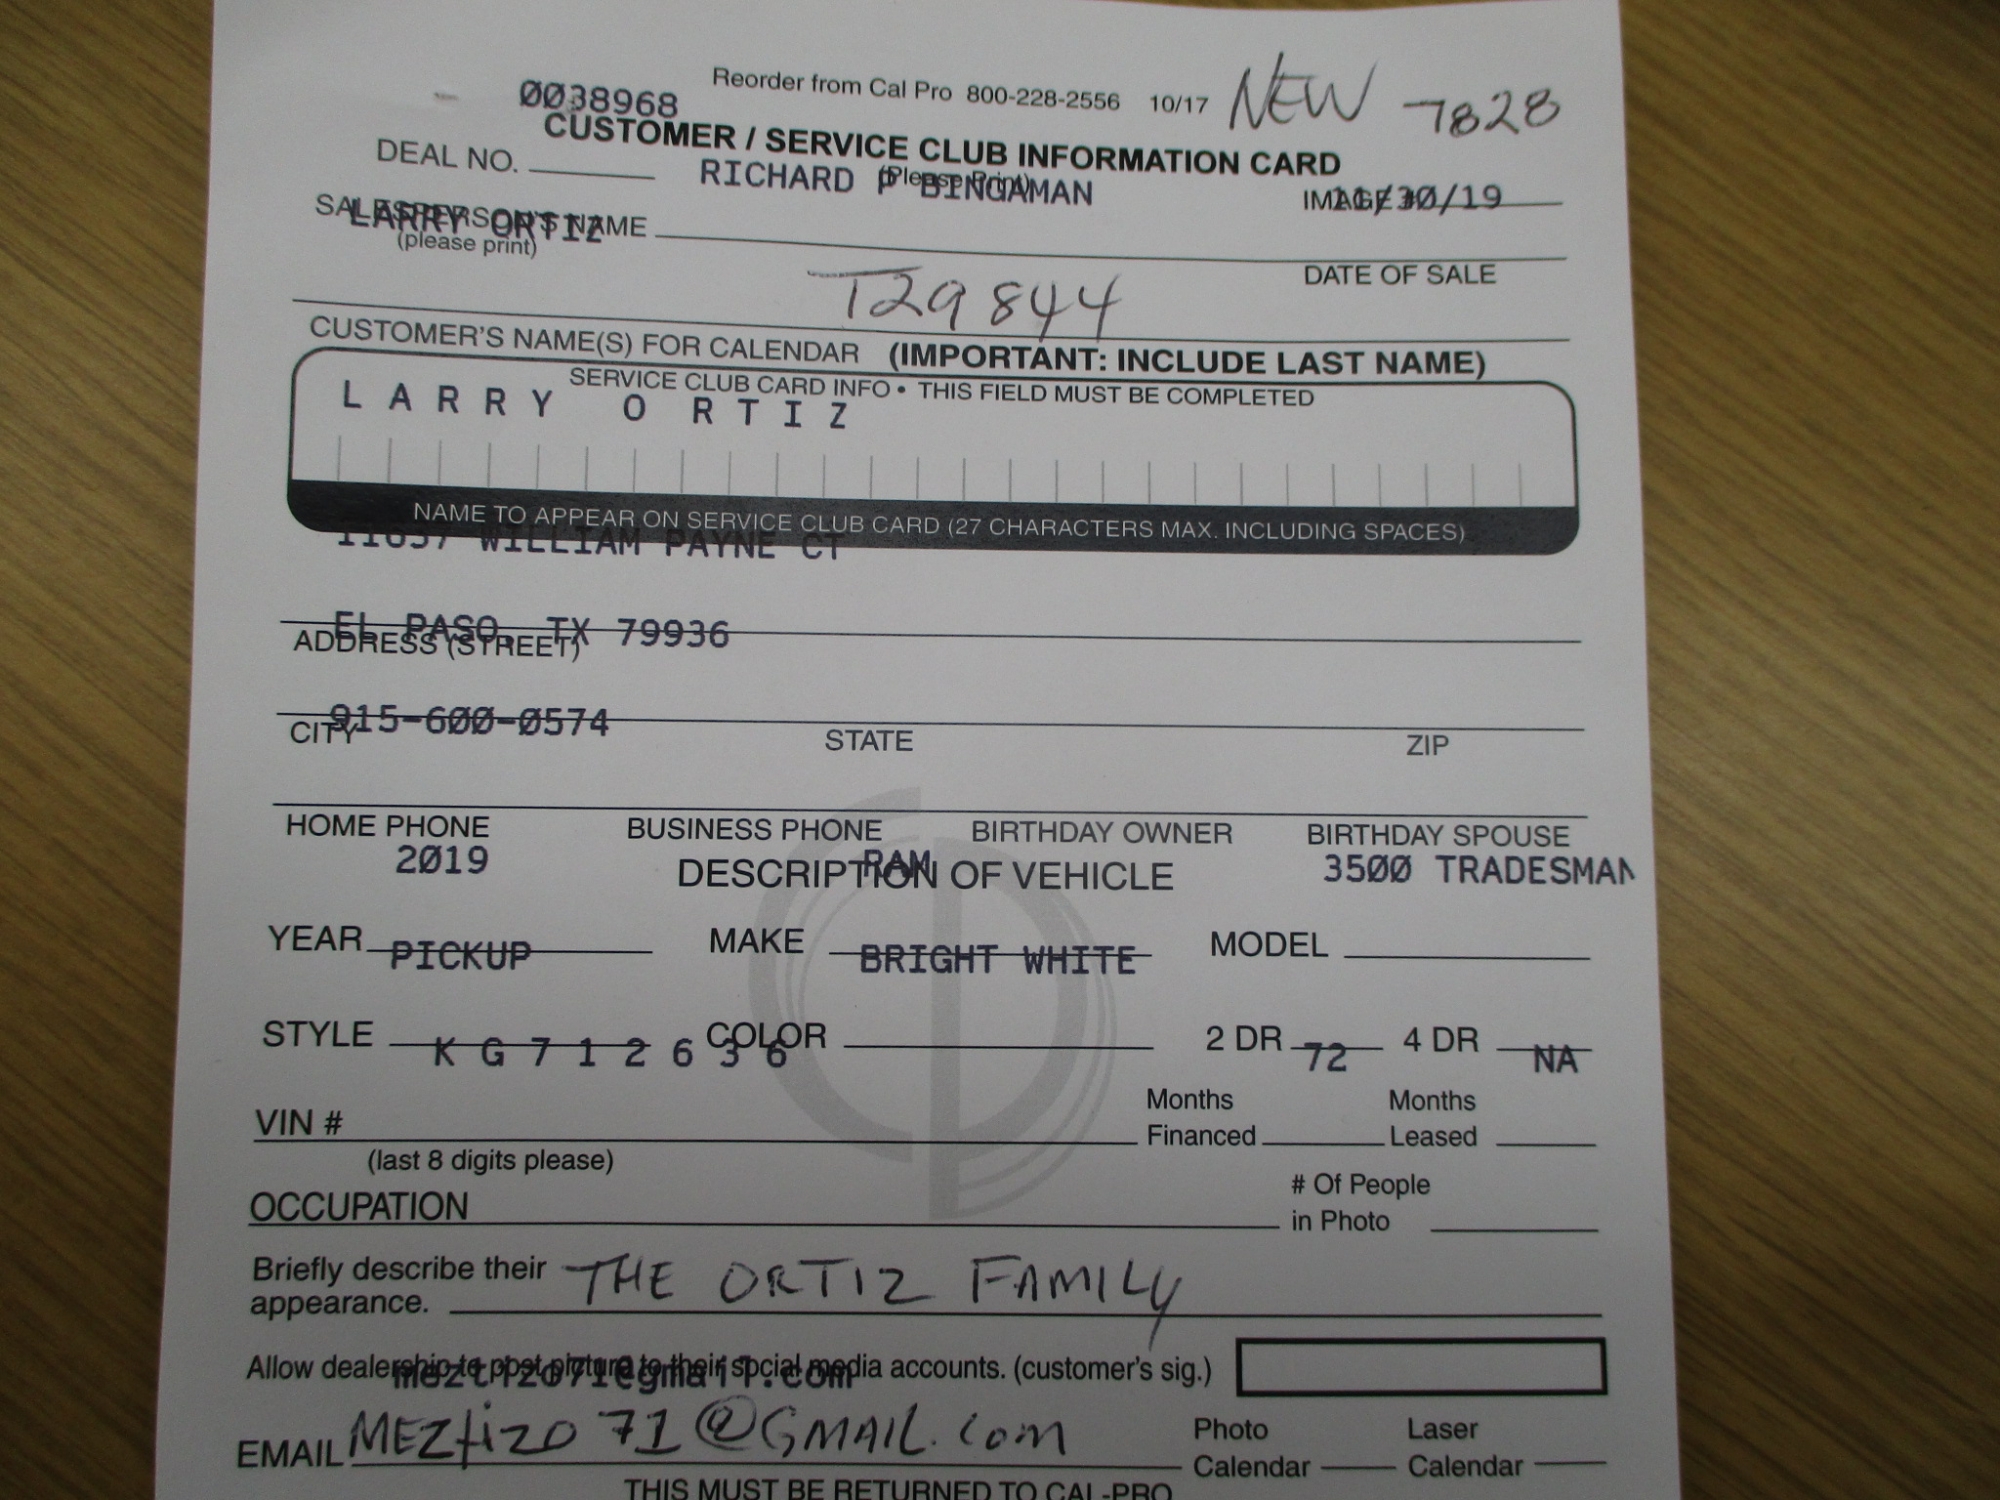 0038968 Reorder from Cal Pro 800-228-2556 10/17 NEW 7828
CUSTOMER / SERVICE CLUB INFORMATION CARD
DEAL NO. RICHARD P BINGAMAN (Please Print) IMAGE # 11/30/19
SALESPERSON'S NAME LARRY ORTIZ
(please print)
DATE OF SALE
T29844
CUSTOMER'S NAME(S) FOR CALENDAR (IMPORTANT: INCLUDE LAST NAME)
SERVICE CLUB CARD INFO • THIS FIELD MUST BE COMPLETED
LARRY ORTIZ
NAME TO APPEAR ON SERVICE CLUB CARD (27 CHARACTERS MAX. INCLUDING SPACES)
WILLIAM PAYNE CT
EL PASO, TX 79936
ADDRESS (STREET)
915-600-0574
CITY STATE ZIP
HOME PHONE BUSINESS PHONE BIRTHDAY OWNER BIRTHDAY SPOUSE
2019 RAM 3500 TRADESMAN
DESCRIPTION OF VEHICLE
YEAR MAKE MODEL
PICKUP BRIGHT WHITE
STYLE COLOR 2 DR 4 DR
KG712636 72 NA
VIN # Months Financed Months Leased
(last 8 digits please)
OCCUPATION # Of People in Photo
Briefly describe their appearance. THE ORTIZ FAMILY
Allow dealership to post picture to their social media accounts. (customer's sig.)
meztizo71@gmail.com
EMAIL MEZtizo71@GMAIL.com Photo Calendar Laser Calendar
THIS MUST BE RETURNED TO CAL-PRO